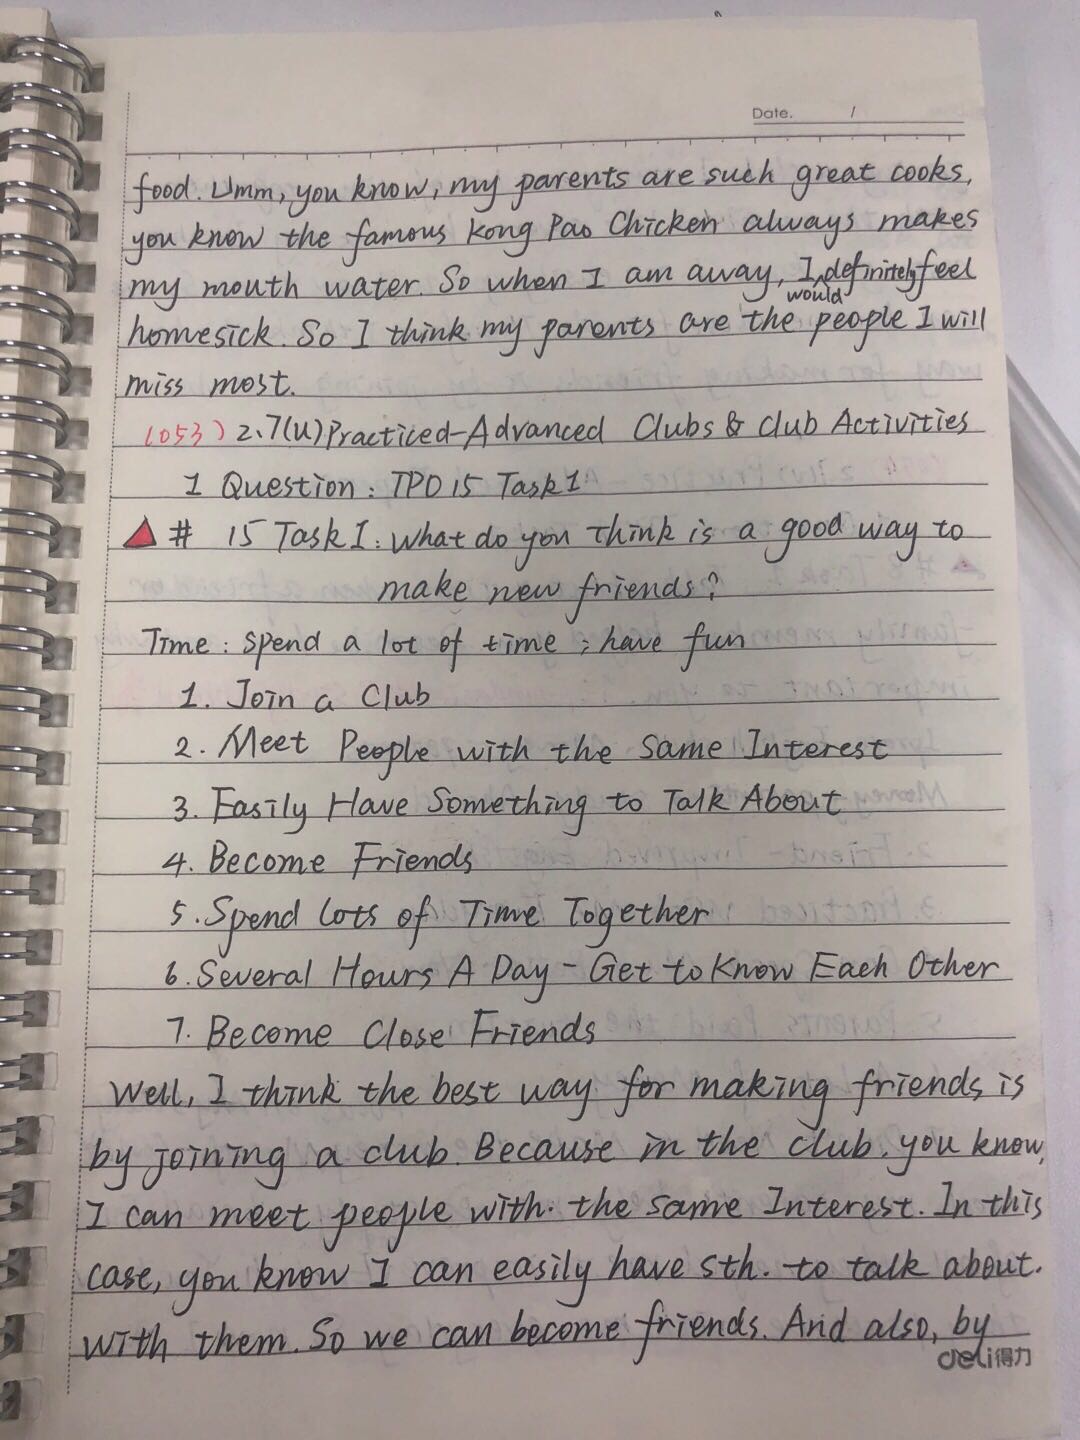 Date. /
food. Umm, you know, my parents are such great cooks,
you know the famous Kong Pao Chicken always makes
my mouth water. So when I am away, I would definitely feel
homesick. So I think my parents are the people I will
miss most.
(053) 2.7(U) Practiced-Advanced Clubs & Club Activities
1 Question: TPO 15 Task 1
# 15 Task 1: What do you think is a good way to
make new friends?
Time: Spend a lot of time; have fun
1. Join a Club
2. Meet People with the Same Interest
3. Easily Have Something to Talk About
4. Become Friends
5. Spend lots of Time Together
6. Several Hours A Day - Get to Know Each Other
7. Become Close Friends
Well, I think the best way for making friends is
by joining a club. Because in the club, you know,
I can meet people with. the same Interest. In this
case, you know I can easily have sth. to talk about.
with them. So we can become friends. And also, by
deli得力